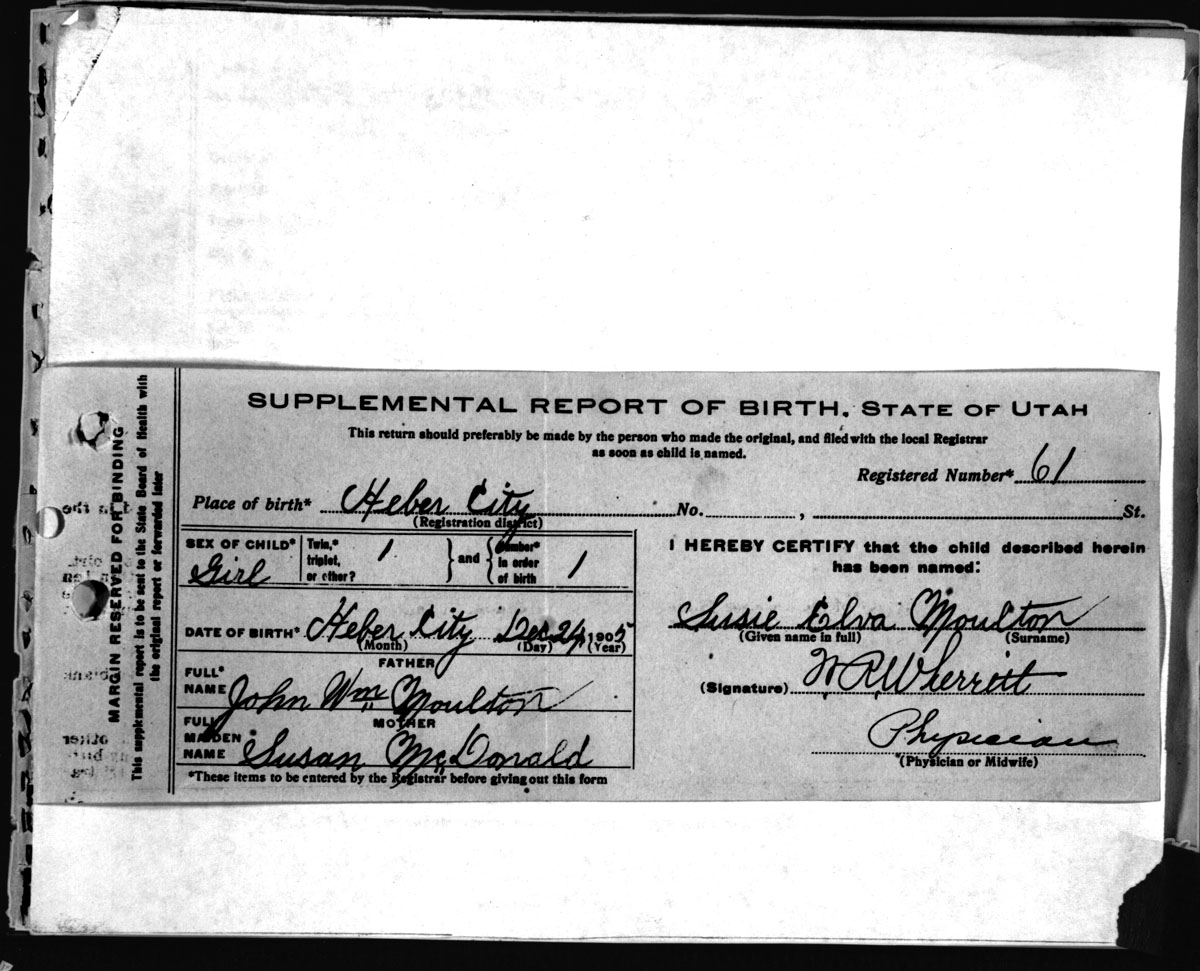 SUPPLEMENTAL REPORT OF BIRTH, STATE OF UTAH
This return should preferably be made by the person who made the original, and filed with the local Registrar
as soon as child is named.
Registered Number* 61
Place of birth* Heber City No. , St.
(Registration district)
SEX OF CHILD* Girl
Twin,* triplet, or other? 1 and Number* in order of birth 1
DATE OF BIRTH* Heber City Dec 24, 1905
(Month) (Day) (Year)
FATHER
FULL* NAME John Wm Moulton
MOTHER
FULL MAIDEN* NAME Susan McDonald
*These items to be entered by the Registrar before giving out this form
I HEREBY CERTIFY that the child described herein
has been named:
Susie Elva Moulton
(Given name in full) (Surname)
(Signature) W R Wherritt
Physician
(Physician or Midwife)
MARGIN RESERVED FOR BINDING
This supplemental report is to be sent to the State Board of Health with
the original report or forwarded later